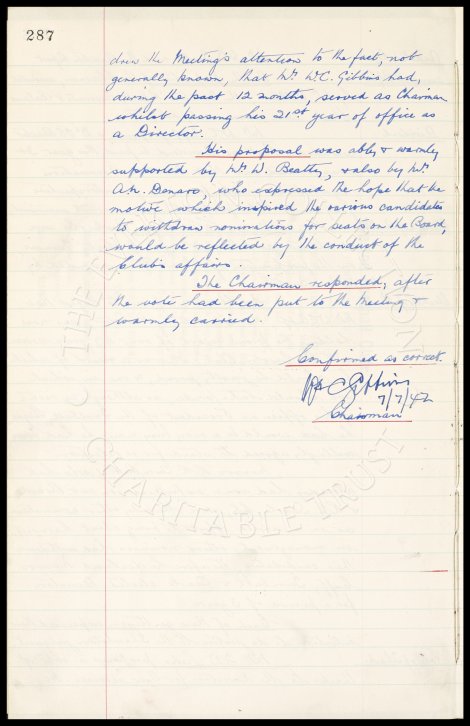 287
drew the Meeting's attention to the fact, not
generally known, that Mr W.C. Gibbins had,
during the past 12 months, served as Chairman
whilst passing his 21st year of office as
a Director.
His proposal was ably & warmly
supported by Mr. W. Beatty, & also by Mr.
A.W. Denaro, who expressed the hope that the
motive which inspired the various candidates
to withdraw nominations for seats on the Board,
would be reflected by the conduct of the
Club's affairs.
The Chairman responded, after
the vote had been put to the Meeting &
warmly carried.
Confirmed as correct.
W C Gibbins
7/7/42
Chairman
CHARITABLE TRUST